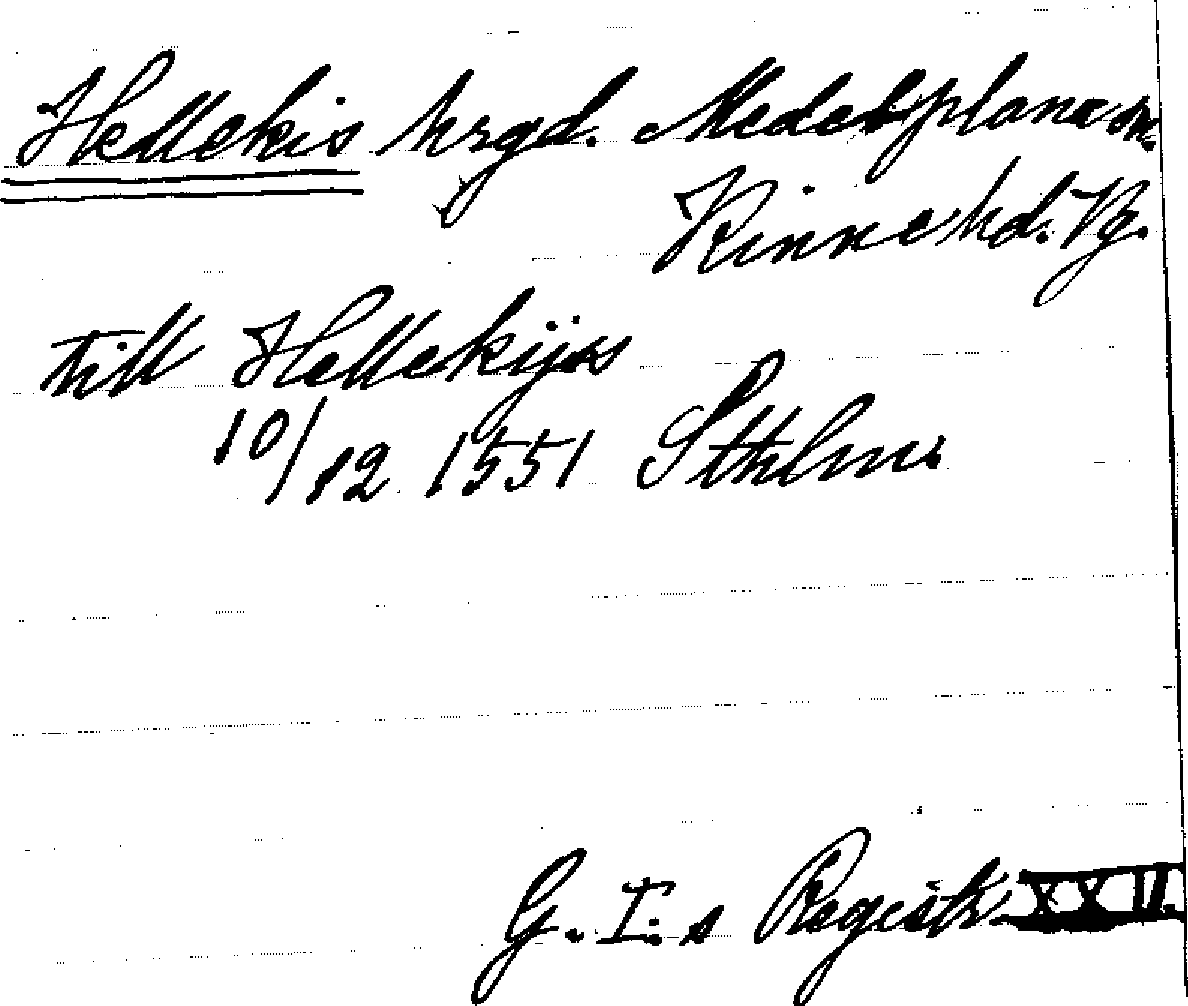 Hellekis hrgd. Medelplana sn.
Kinne hd. Vg.
till Hellekijss
10/12 1551 Sthlm.
G. I:s Registr. XXII.